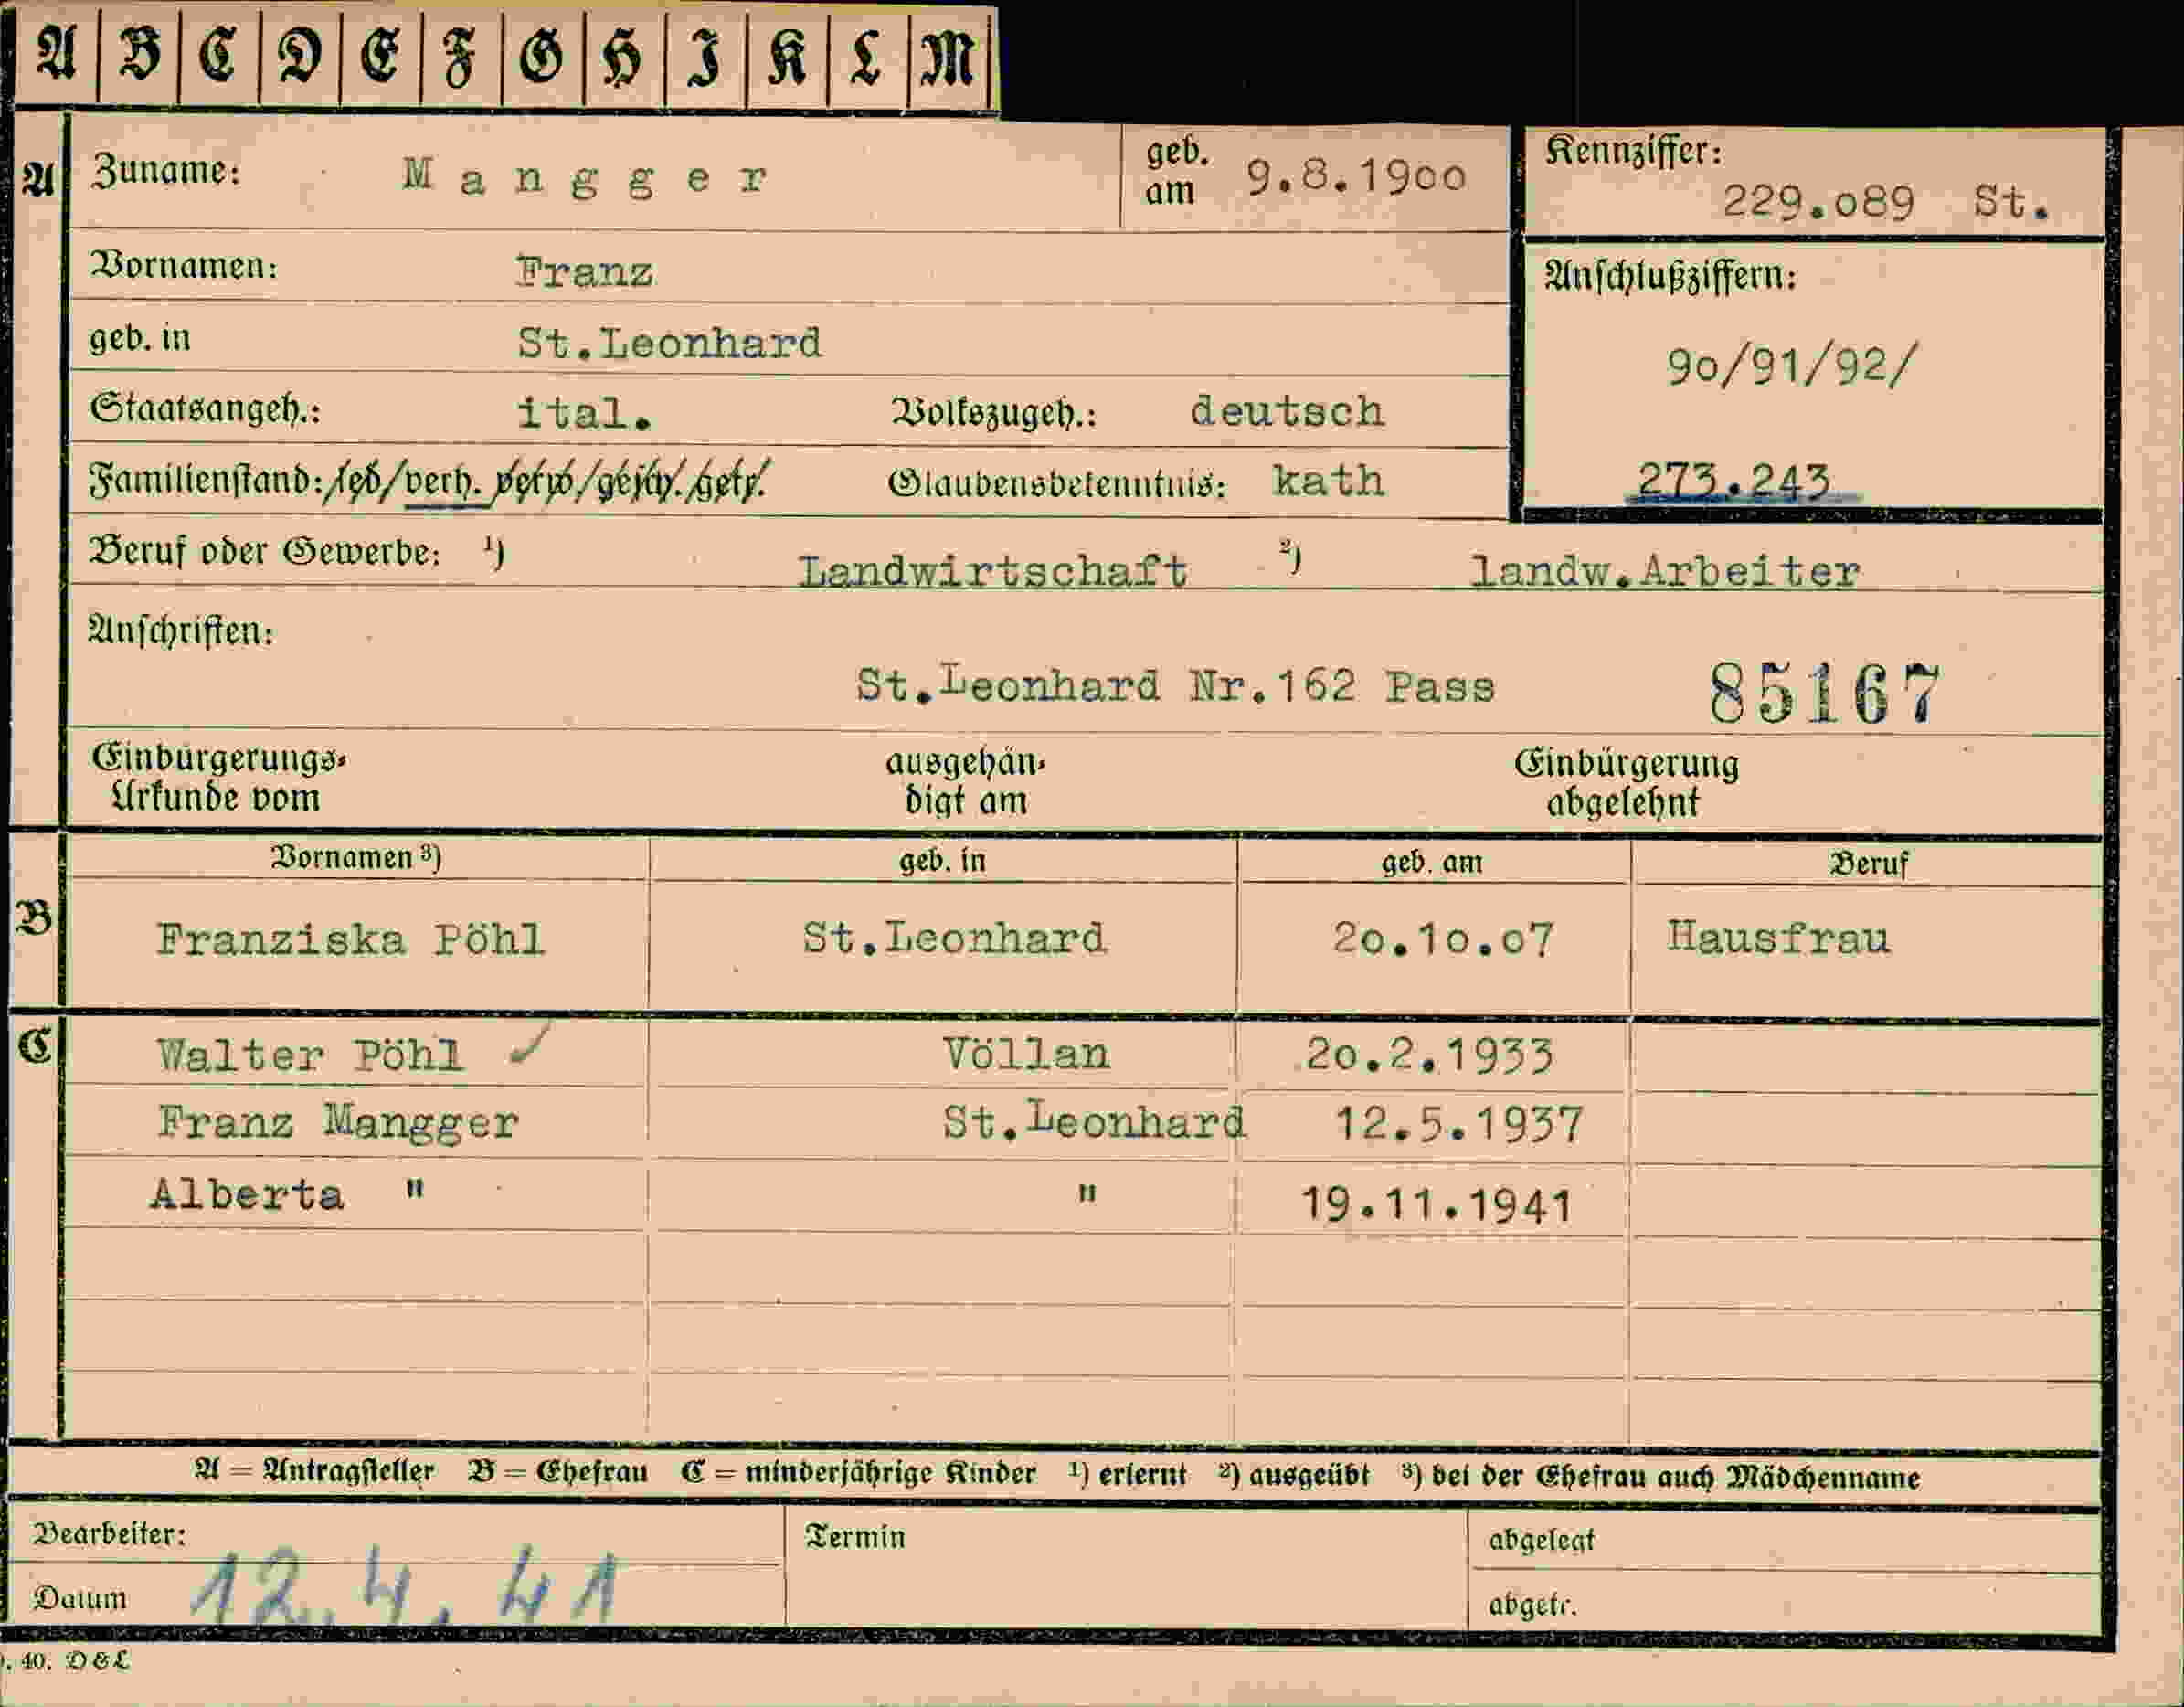 A B C D E F G H I K L M
A Zuname: Mangger geb. am 9.8.1900 Kennziffer: 229.089 St.
Vornamen: Franz Anschlußziffern:
geb. in St.Leonhard 90/91/92/
Staatsangeh.: ital. Volkszugeh.: deutsch
Familienstand: led/verh. verw/gesch./getr. Glaubensbekenntnis: kath 273.243
Beruf oder Gewerbe: 1) Landwirtschaft 2) landw.Arbeiter
Anschriften:
St.Leonhard Nr.162 Pass 85167
Einbürgerungs- ausgehän- Einbürgerung
Urkunde vom digt am abgelehnt
Vornamen 3) geb. in geb. am Beruf
B Franziska Pöhl St.Leonhard 20.10.07 Hausfrau
C Walter Pöhl ✓ Völlan 20.2.1933
Franz Mangger St.Leonhard 12.5.1937
Alberta " " 19.11.1941
A = Antragsteller B = Ehefrau C = minderjährige Kinder 1) erlernt 2) ausgeübt 3) bei der Ehefrau auch Mädchenname
Bearbeiter: Termin abgelegt
Datum 12.4.41 abgetr.
. 40. D & L